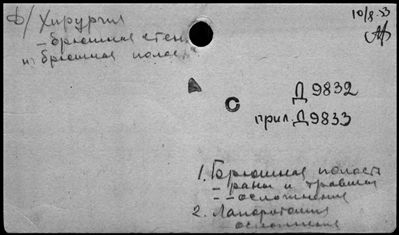 Ф/ Хирургия
10/8.53
- брюшная стен
и брюшная полос
Д 9832
прил. Д 9833
1. Брюшная полость
- раны и травмы
- - осложнения
2. Лапаротомия
осложнения